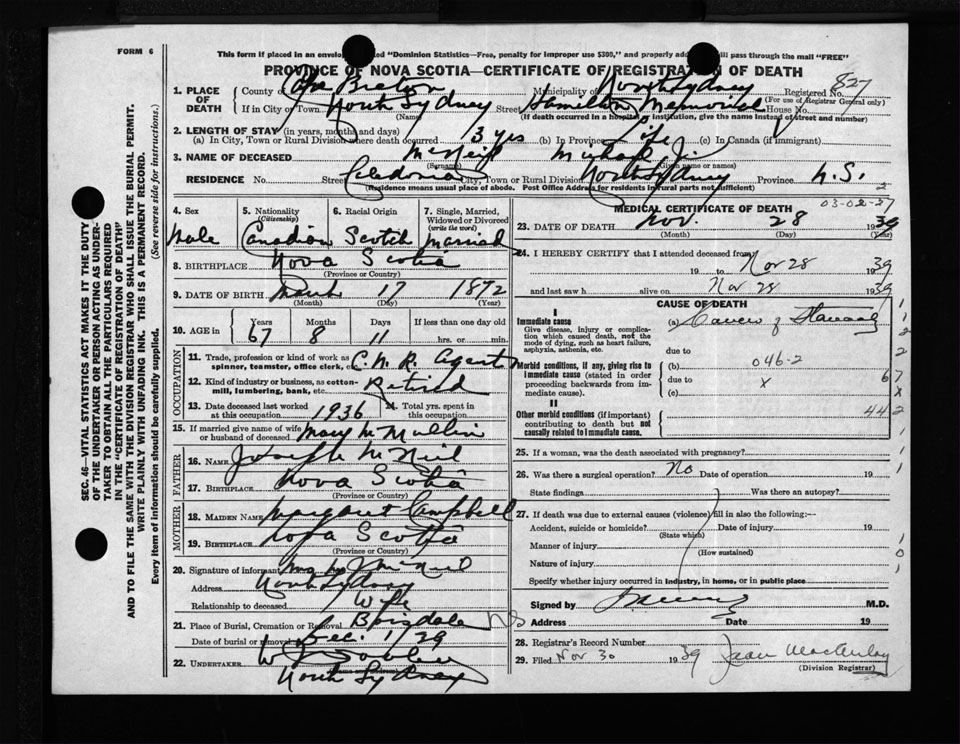 FORM 6
This form if placed in an envelop marked "Dominion Statistics—Free, penalty for improper use $300," and properly ad will pass through the mail "FREE"
PROVINCE OF NOVA SCOTIA—CERTIFICATE OF REGISTRATION OF DEATH
827
1. PLACE OF DEATH
County of Cape Breton Municipality of North Sydney Registered No.
(For use of Registrar General only)
If in City or Town North Sydney Street Hamilton Memorial House No.
(Name) (If death occurred in a hospital or institution, give the name instead of street and number)
2. LENGTH OF STAY (in years, months and days)
(a) In City, Town or Rural Division where death occurred 3 yrs (b) In Province Life (c) In Canada (if immigrant)
3. NAME OF DECEASED McNeil Michael J.
(Surname) (Given name or names)
RESIDENCE No. Street Caledonia City, Town or Rural Division North Sydney Province N.S.
(Residence means usual place of abode. Post Office Address for residents in rural parts not sufficient)
4. Sex Male
5. Nationality (Citizenship) Canadian
6. Racial Origin Scotch
7. Single, Married, Widowed or Divorced (write the word) Married
8. BIRTHPLACE Nova Scotia
(Province or Country)
9. DATE OF BIRTH March 17 1872
(Month) (Day) (Year)
10. AGE in Years Months Days If less than one day old
67 8 11 hrs. or min.
OCCUPATION
11. Trade, profession or kind of work as spinner, teamster, office clerk, etc. C.N.R. Agent
12. Kind of industry or business, as cotton-mill, lumbering, bank, etc. Retired
13. Date deceased last worked at this occupation 1936
14. Total yrs. spent in this occupation
15. If married give name of wife or husband of deceased Mary McMullin
FATHER
16. Name Joseph McNeil
17. Birthplace Nova Scotia
(Province or Country)
MOTHER
18. Maiden Name Margaret Campbell
19. Birthplace Nova Scotia
(Province or Country)
20. Signature of informant Mrs M J McNeil
Address North Sydney
Relationship to deceased Wife
21. Place of Burial, Cremation or Removal Boisdale NS
Date of burial or removal Dec. 1/39
22. UNDERTAKER
North Sydney
MEDICAL CERTIFICATE OF DEATH
23. DATE OF DEATH Nov. 28 1939
(Month) (Day) (Year)
24. I HEREBY CERTIFY that I attended deceased from
19 to Nov 28 1939
and last saw h alive on Nov 28 1939
CAUSE OF DEATH
I
Immediate cause
Give disease, injury or complication which caused death, not the mode of dying, such as heart failure, asphyxia, asthenia, etc.
(a) Cancer of Stomach
due to
(b) 046-2
Morbid conditions, if any, giving rise to immediate cause (stated in order proceeding backwards from immediate cause).
due to x
(c)
II
Other morbid conditions (if important) contributing to death but not causally related to immediate cause.
442
25. If a woman, was the death associated with pregnancy?
26. Was there a surgical operation? No Date of operation 19
State findings Was there an autopsy?
27. If death was due to external causes (violence) fill in also the following:—
Accident, suicide or homicide? Date of injury 19
(State which)
Manner of injury
(How sustained)
Nature of injury
Specify whether injury occurred in industry, in home, or in public place
Signed by M.D.
Address Date 19
28. Registrar's Record Number
29. Filed Nov 30 1939 Jean MacAulay
(Division Registrar)
SEC. 46—VITAL STATISTICS ACT MAKES IT THE DUTY
OF THE UNDERTAKER OR PERSON ACTING AS UNDER-
TAKER TO OBTAIN ALL THE PARTICULARS REQUIRED
IN THE "CERTIFICATE OF REGISTRATION OF DEATH"
AND TO FILE THE SAME WITH THE DIVISION REGISTRAR WHO SHALL ISSUE THE BURIAL PERMIT.
WRITE PLAINLY WITH UNFADING INK. THIS IS A PERMANENT RECORD.
Every item of information should be carefully supplied. (See reverse side for instructions.)